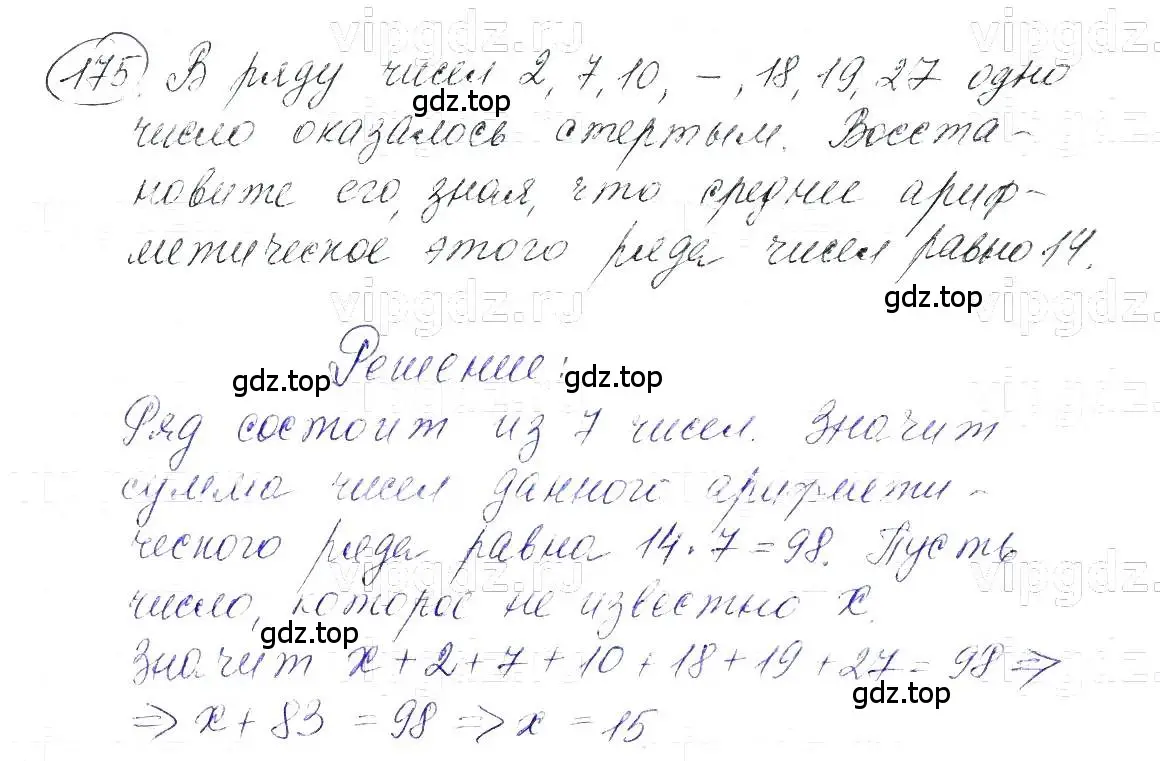 175. В ряду чисел 2, 7, 10, –, 18, 19, 27 одно
число оказалось стертым. Восста-
новите его, зная, что среднее ариф-
метическое этого ряда чисел равно 14.
Решение:
Ряд состоит из 7 чисел. Значит
сумма чисел данного арифмети-
ческого ряда равна 14 · 7 = 98. Пусть
число, которое не известно x.
Значит x + 2 + 7 + 10 + 18 + 19 + 27 = 98 ⇒
⇒ x + 83 = 98 ⇒ x = 15
vipgdz.ru
gdz.top
gdz.top
vipgdz.ru
gdz.top
gdz.top
gdz.top
gdz.top